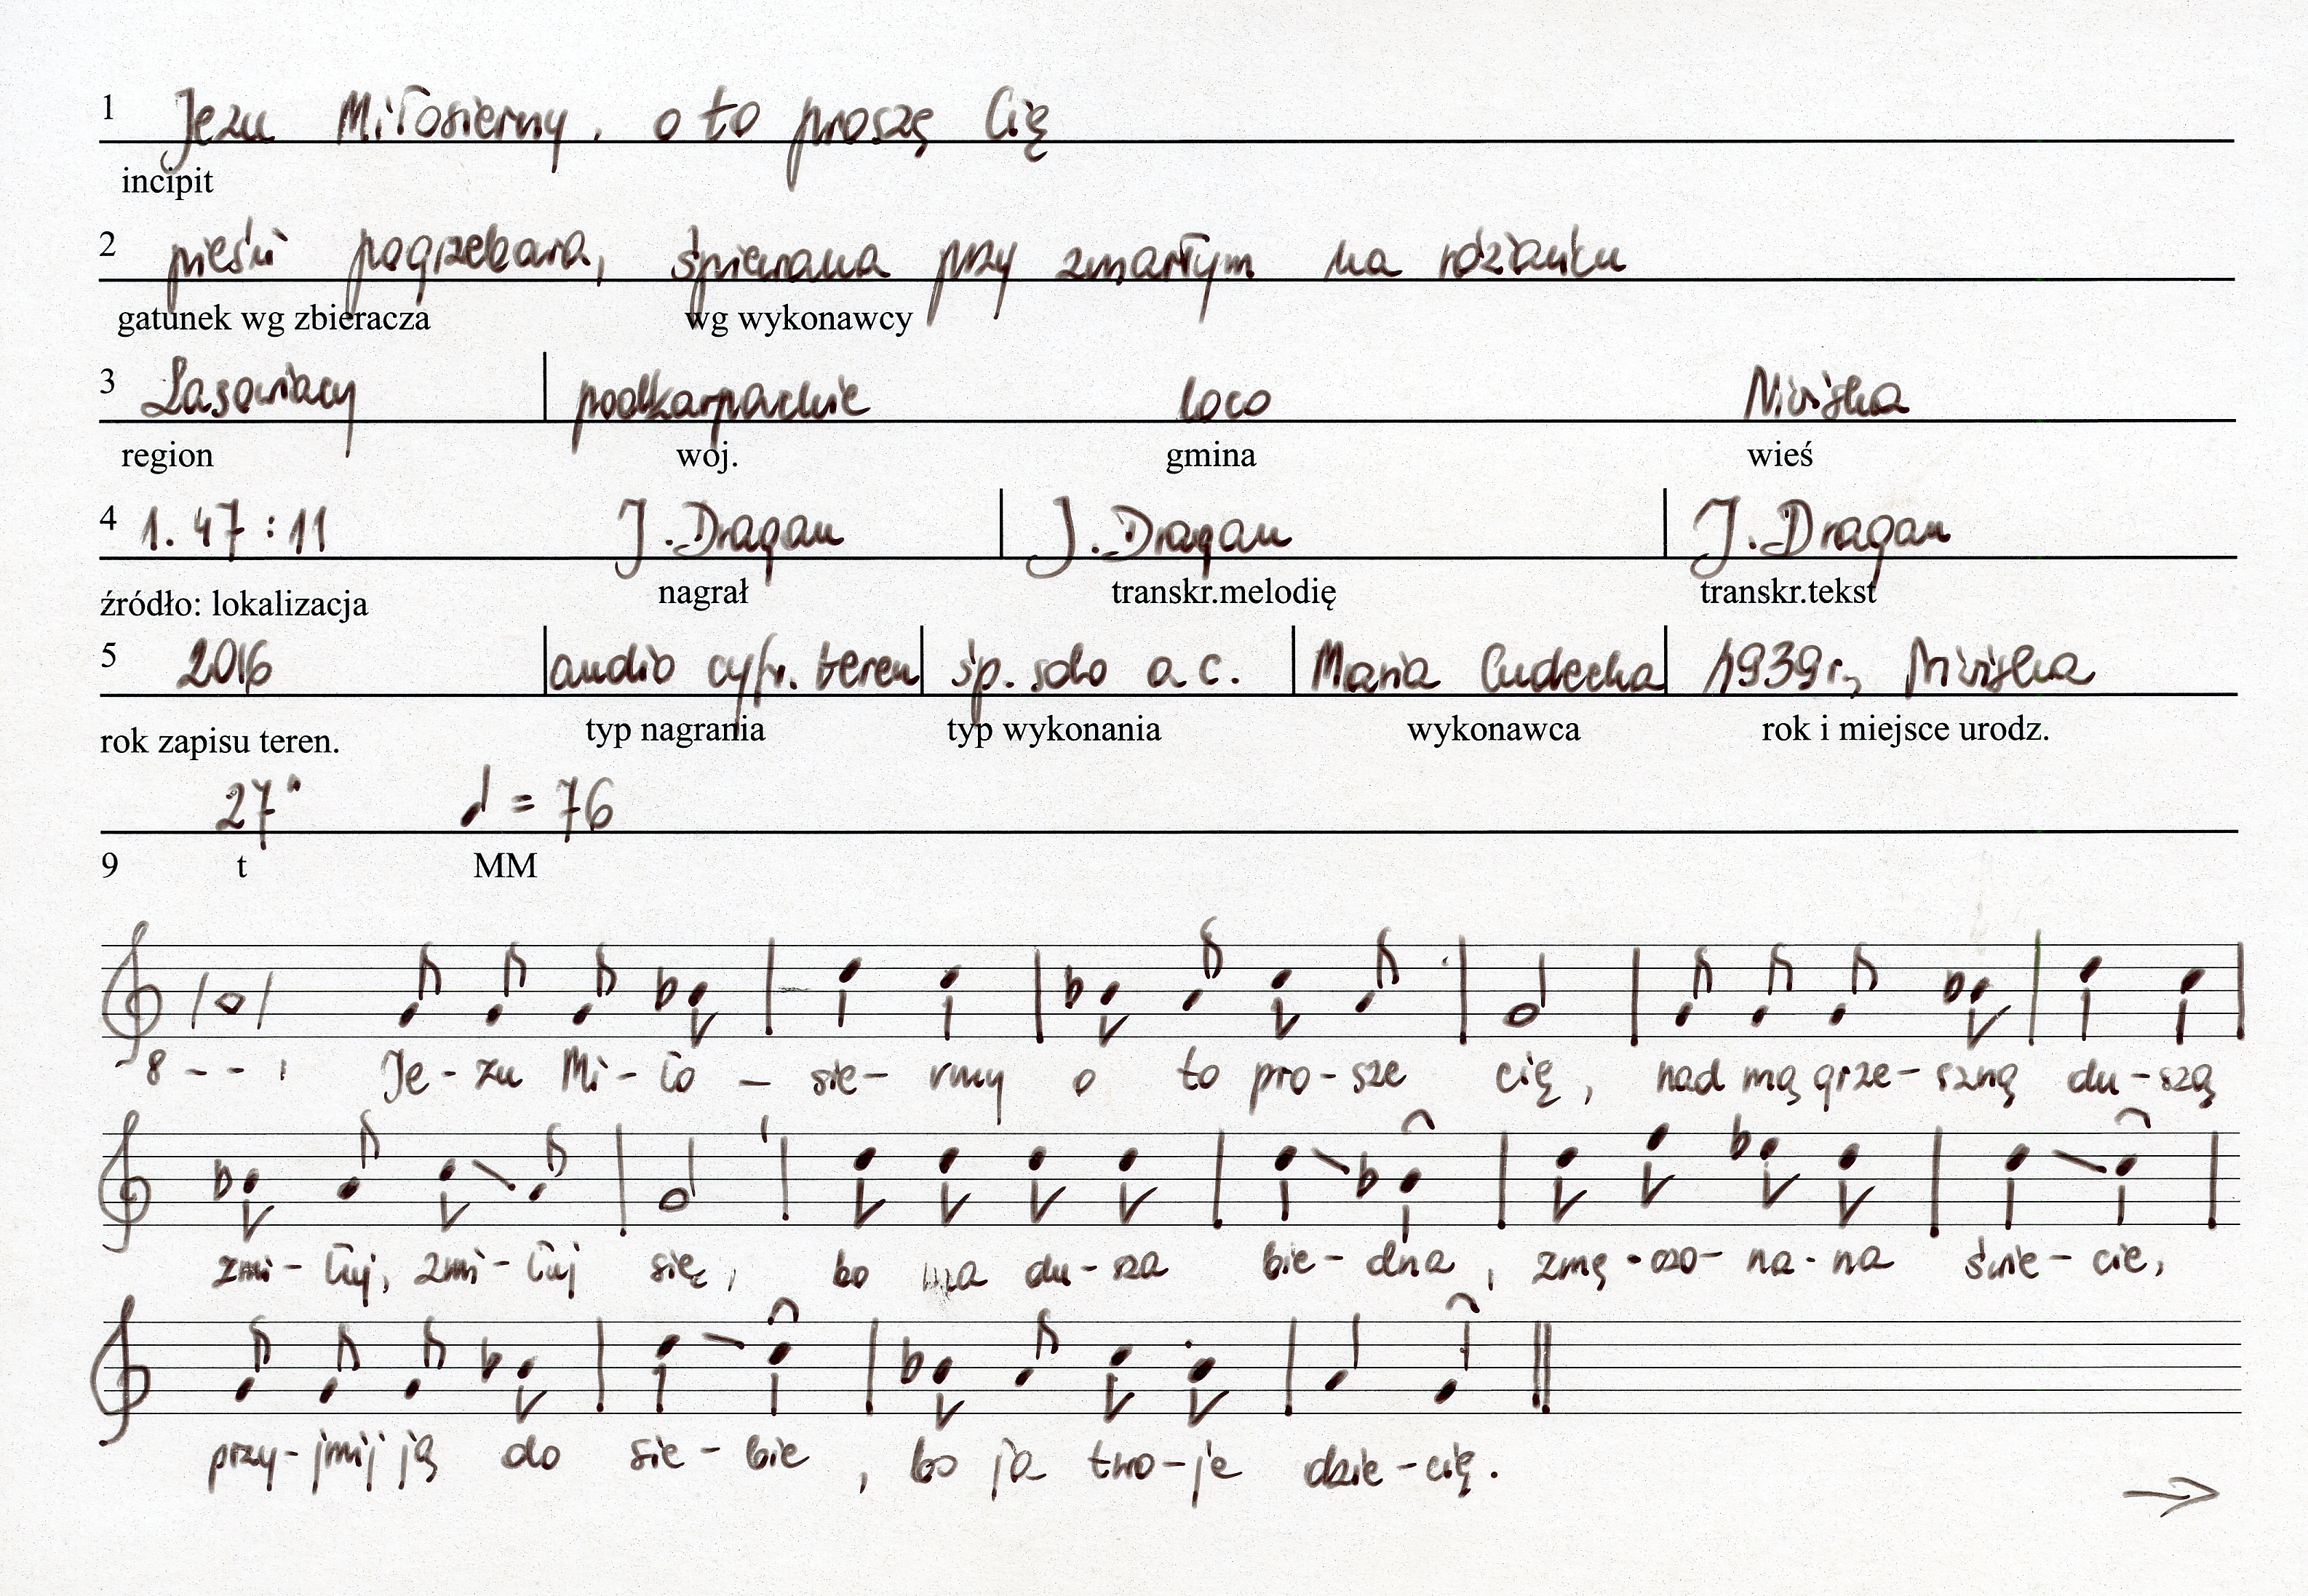 1 Jezu Miłosierny, o to proszę Cię
incipit
2 pieśń pogrzebowa, śpiewana przy zmarłym na różańcu
gatunek wg zbieracza wg wykonawcy
3 Lasowiacy podkarpackie loco Niwiska
region woj. gmina wieś
4 1. 47:11 J. Dragan J. Dragan J. Dragan
źródło: lokalizacja nagrał transkr.melodię transkr.tekst
5 2016 audio cyfr. teren śp. solo a c. Maria Cudecka 1939 r., Niwiska
rok zapisu teren. typ nagrania typ wykonania wykonawca rok i miejsce urodz.
27" ♩ = 76
9 t MM
8 - - ' Je - zu Mi - ło - sie - rny o to pro - sze cię, nad mą grze - szną du - szą
zmi - łuj, zmi - łuj się, bo ma du - sza bie - dna, zmę - czo - na - na świe - cie,
przy - jmij ją do sie - bie, bo ja two - je dzie - cię.